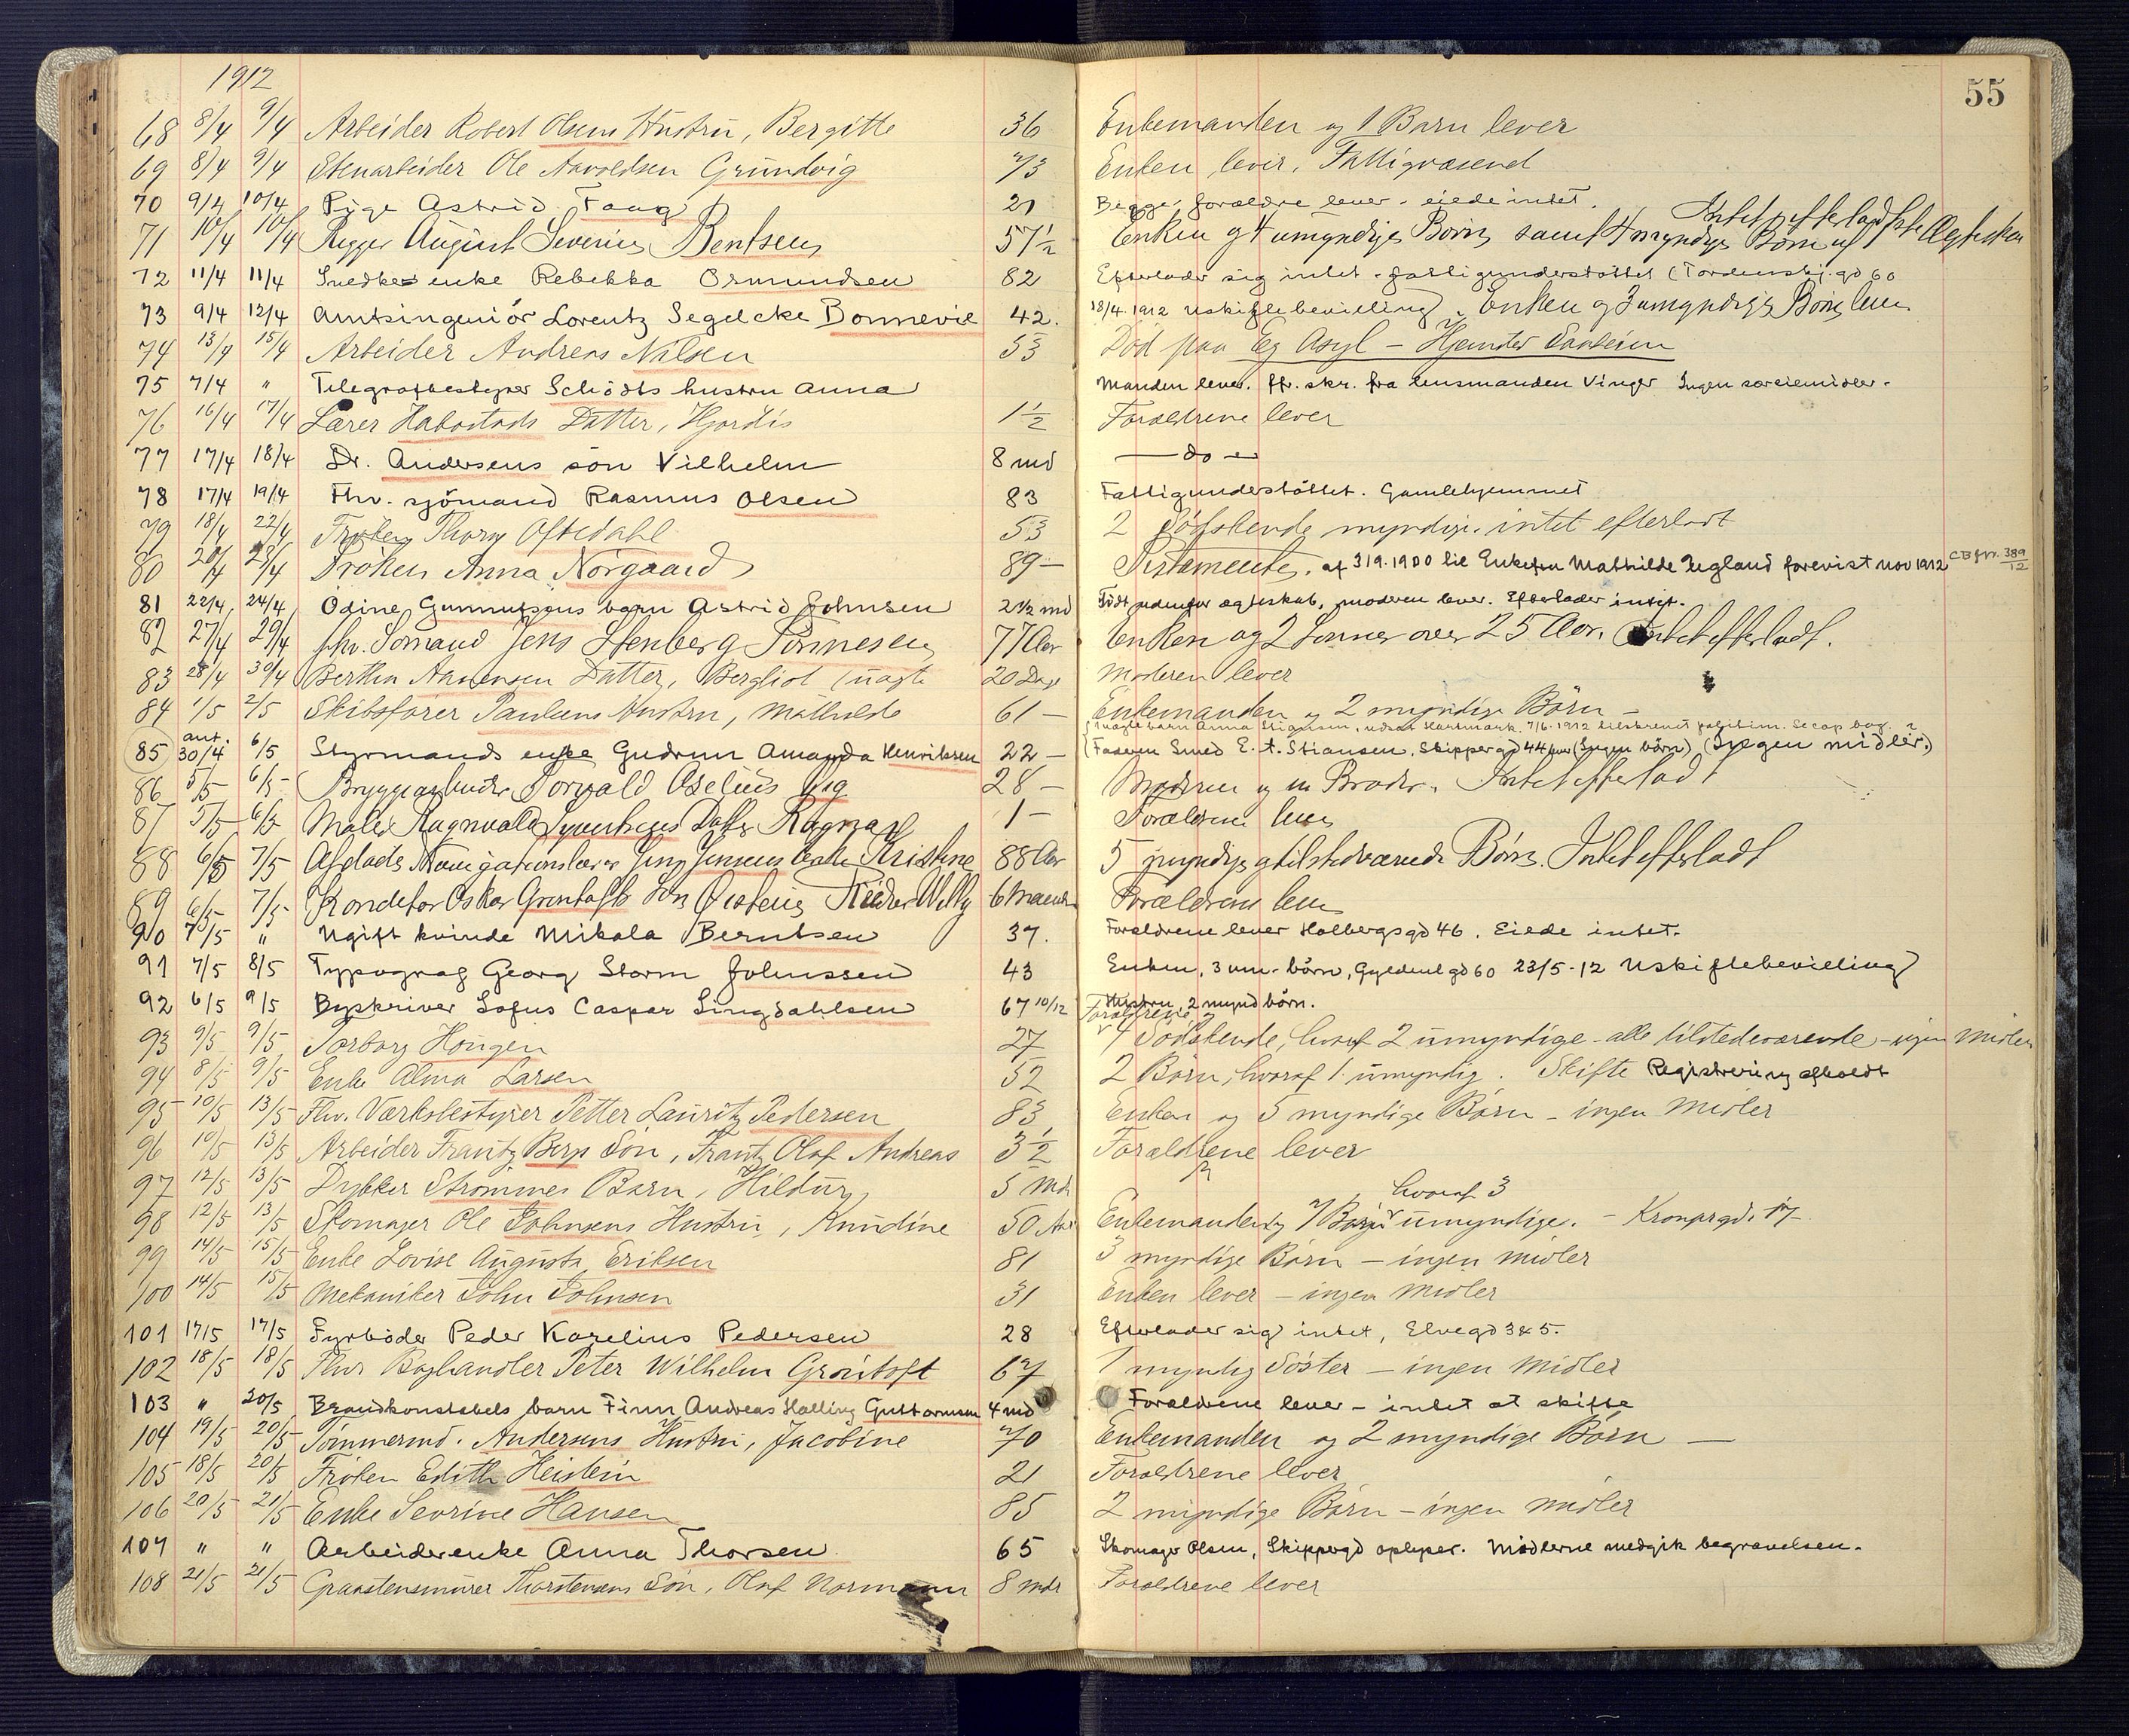 1912
55
68 8/4 9/4 Arbeider Robert Olsens Hustru, Bergitte 36 Enkemanden og 1 Barn lever
69 8/4 9/4 Stenarbeider Ole Aavoldsen Grundvig 73 Enken lever. Fattigvæsenet
70 9/4 10/4 Pige Astrid Faag 21 Begge forældre lever. eiede intet.
71 10/4 10/4 Rigger August Severin Bentsen 57½ Enken og 4 umyndige Børn samt 4 myndige Børn af 1ste Ægteskab Intet efterladt
72 11/4 11/4 Snedkerenke Rebekka Osmundsen 82 Efterlader sig intet. fattigunderstöttet (Tordenskj.gd 60
73 9/4 12/4 Amtsingeniör Lorentz Segelcke Bonnevie 42. 18/4.1912 Uskiftebevilling. Enken og 3 umyndige Børn lever
74 13/4 15/4 Arbeider Andreas Nilsen 53 Död paa Eg Asyl – Hjemter
75 7/4 " Telegrafbestyrer Schiödts hustru Anna Manden lever. ffr. skr. fra lensmanden Vinger Ingen særeiemidler.
76 16/4 17/4 Lærer Habostads Datter, Hjördis 1½ Forældrene lever
77 17/4 18/4 Dr. Andersens sön Vilhelm 8 md — do —
78 17/4 19/4 Fhv. sjömand Rasmus Olsen 83 Fattigunderstöttet. Gamlehjemmet
79 18/4 22/4 Frøken Thora Oftedahl 53 2 Södskende myndige. intet efterladt
80 20/4 23/4 Frøken Anna Nörgaard 89 — Testamente. af 3/9.1900 til Enkefru Mathilde Ugland forevist nov 1912 CB fr. 389/12
81 22/4 24/4 Odine Gunnufsens barn Astrid Johnsen 2½ md Födt udenfor ægteskab, moderen lever. Efterlader intet.
82 27/4 29/4 fhv. Sömand Jens Stenberg Tönnesen 77 Aar Enken og 2 Sønner over 25 Aar. Intet efterladt.
83 28/4 30/4 Berthe Aanensen Datter, Bergliot (uægte 20 Dage Moderen lever
84 1/5 2/5 Skibsförer Paulsens Hustru, Mathilde 61 — Enkemanden og 2 myndige Børn —
85 ant. 30/4 6/5 Styrmands enke Gudrun Amanda Henriksen 22 — (Faderen Smed E. A. Stiansen, Skippergd 44 (Ingen börn) (Ingen midler.)
86 5/5 6/5 Bryggearbeider Torvald Oselius Vig 28 — Moderen og en Broder. Intet efterladt
87 5/5 6/5 Maler Ragnvald Syvertsens Datter Ragna 1 — Forældrene lever
88 6/5 7/5 Afdøde Navigationslærer Jens Jensens Enke Kristine 88 Aar 5 myndige og tilstedværende Børn. Intet efterladt
89 6/5 7/5 Konditor Oskar Grøntofts Søn Øistein Reidar Willy 6 Maaneder Forældrene lever
90 7/5 " Ugift kvinde Mikala Berntsen 37. Forældrene lever Holbergsgd 46. Eiede intet.
91 7/5 8/5 Typograf Georg Storm Johnssen 43 Enken, 3 um. börn, Gyldenl.gd 60 23/5-12 Uskiftebevilling
92 6/5 9/5 Byskriver Sofus Caspar Lingdahlsen 67 10/12 Hustru, 2 mynd börn.
93 9/5 9/5 Torborg Hougen 27 Forældrene og 4 Södskende, hvoraf 2 umyndige – alle tilstedeværende – ingen Midler
94 8/5 9/5 Enke Alma Larsen 52 2 Børn, hvoraf 1 umyndig. Skifte Registrering afholdt
95 10/5 13/5 Fhv. Værksbestyrer Petter Lauritz Pedersen 83 Enken og 5 myndige Børn – ingen Midler
96 10/5 13/5 Arbeider Frantz Bergs Sön, Frantz Olaf Andreas 3½ Forældrene lever
97 12/5 13/5 Dykker Strömmes Barn, Hildur 5 Mdr "
98 12/5 13/5 Skomager Ole Johnsens Hustru, Knudine 50 Aar Enkemanden og 7 Börn hvoraf 3 umyndige. – Kronprgd. 17 –
99 14/5 15/5 Enke Lovise Augusta Eriksen 81 3 myndige Børn – ingen midler
100 14/5 15/5 Mekaniker John Johnsen 31 Enken lever – ingen Midler
101 17/5 17/5 Fyrböder Peder Karelius Pedersen 28 Efterlader sig intet, Elvegd 38 5.
102 18/5 18/5 Fhv. Boghandler Peter Wilhelm Gröntoft 67 1 myndig Söster – ingen Midler
103 " 20/5 Brandkonstabels barn Finn Andreas Halling Guttormsen 4 md Forældrene lever – intet at skifte
104 19/5 20/5 Tömmermd. Andersens Hustru, Jacobine 70 Enkemanden og 2 myndige Børn —
105 18/5 20/5 Fröken Edith Heistein 21 Forældrene lever
106 20/5 21/5 Enke Sevrine Hansen 85 2 myndige Børn – ingen midler
107 " " Arbeiderenke Anna Thorsen 65 Skomager Olsen, Skippergd oplyser. Midlerne medgik begravelsen.
108 21/5 21/5 Graastensmurer Thorstensens Sön, Olaf Normann 8 mdr Forældrene lever